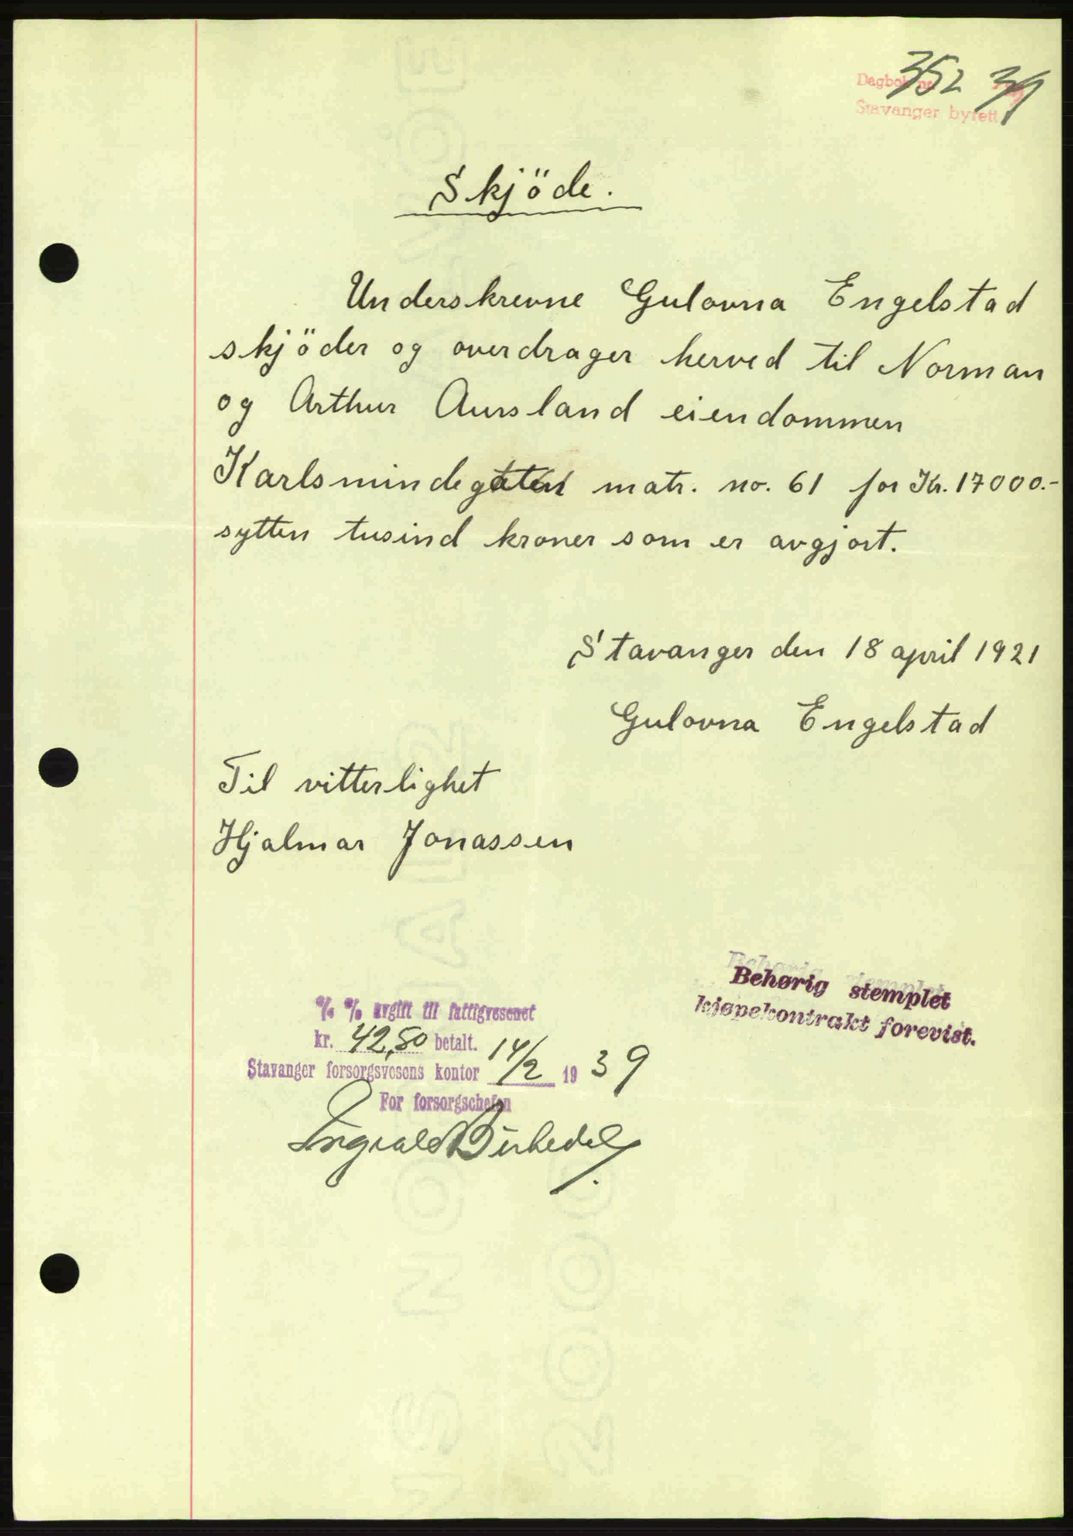 Dagbok 352 39
Stavanger byrett
Skjöde.
Underskrevne Gulovna Engelstad
skjöder og overdrager herved til Norman
og Arthur Aursland eiendommen
Karlsmindegaten matr. no. 61 for Kr. 17000.-
sytten tusind kroner som er avgjort.
Stavanger den 18 april 1921
Gulovna Engelstad
Til vitterlighet
Hjalmar Jonassen
Behørig stemplet
kjøpekontrakt forevist.
avgift til fattigvesenet
kr. 42,50 betalt.
Stavanger forsorgsvesens kontor 14/2 1939
For forsorgschefen